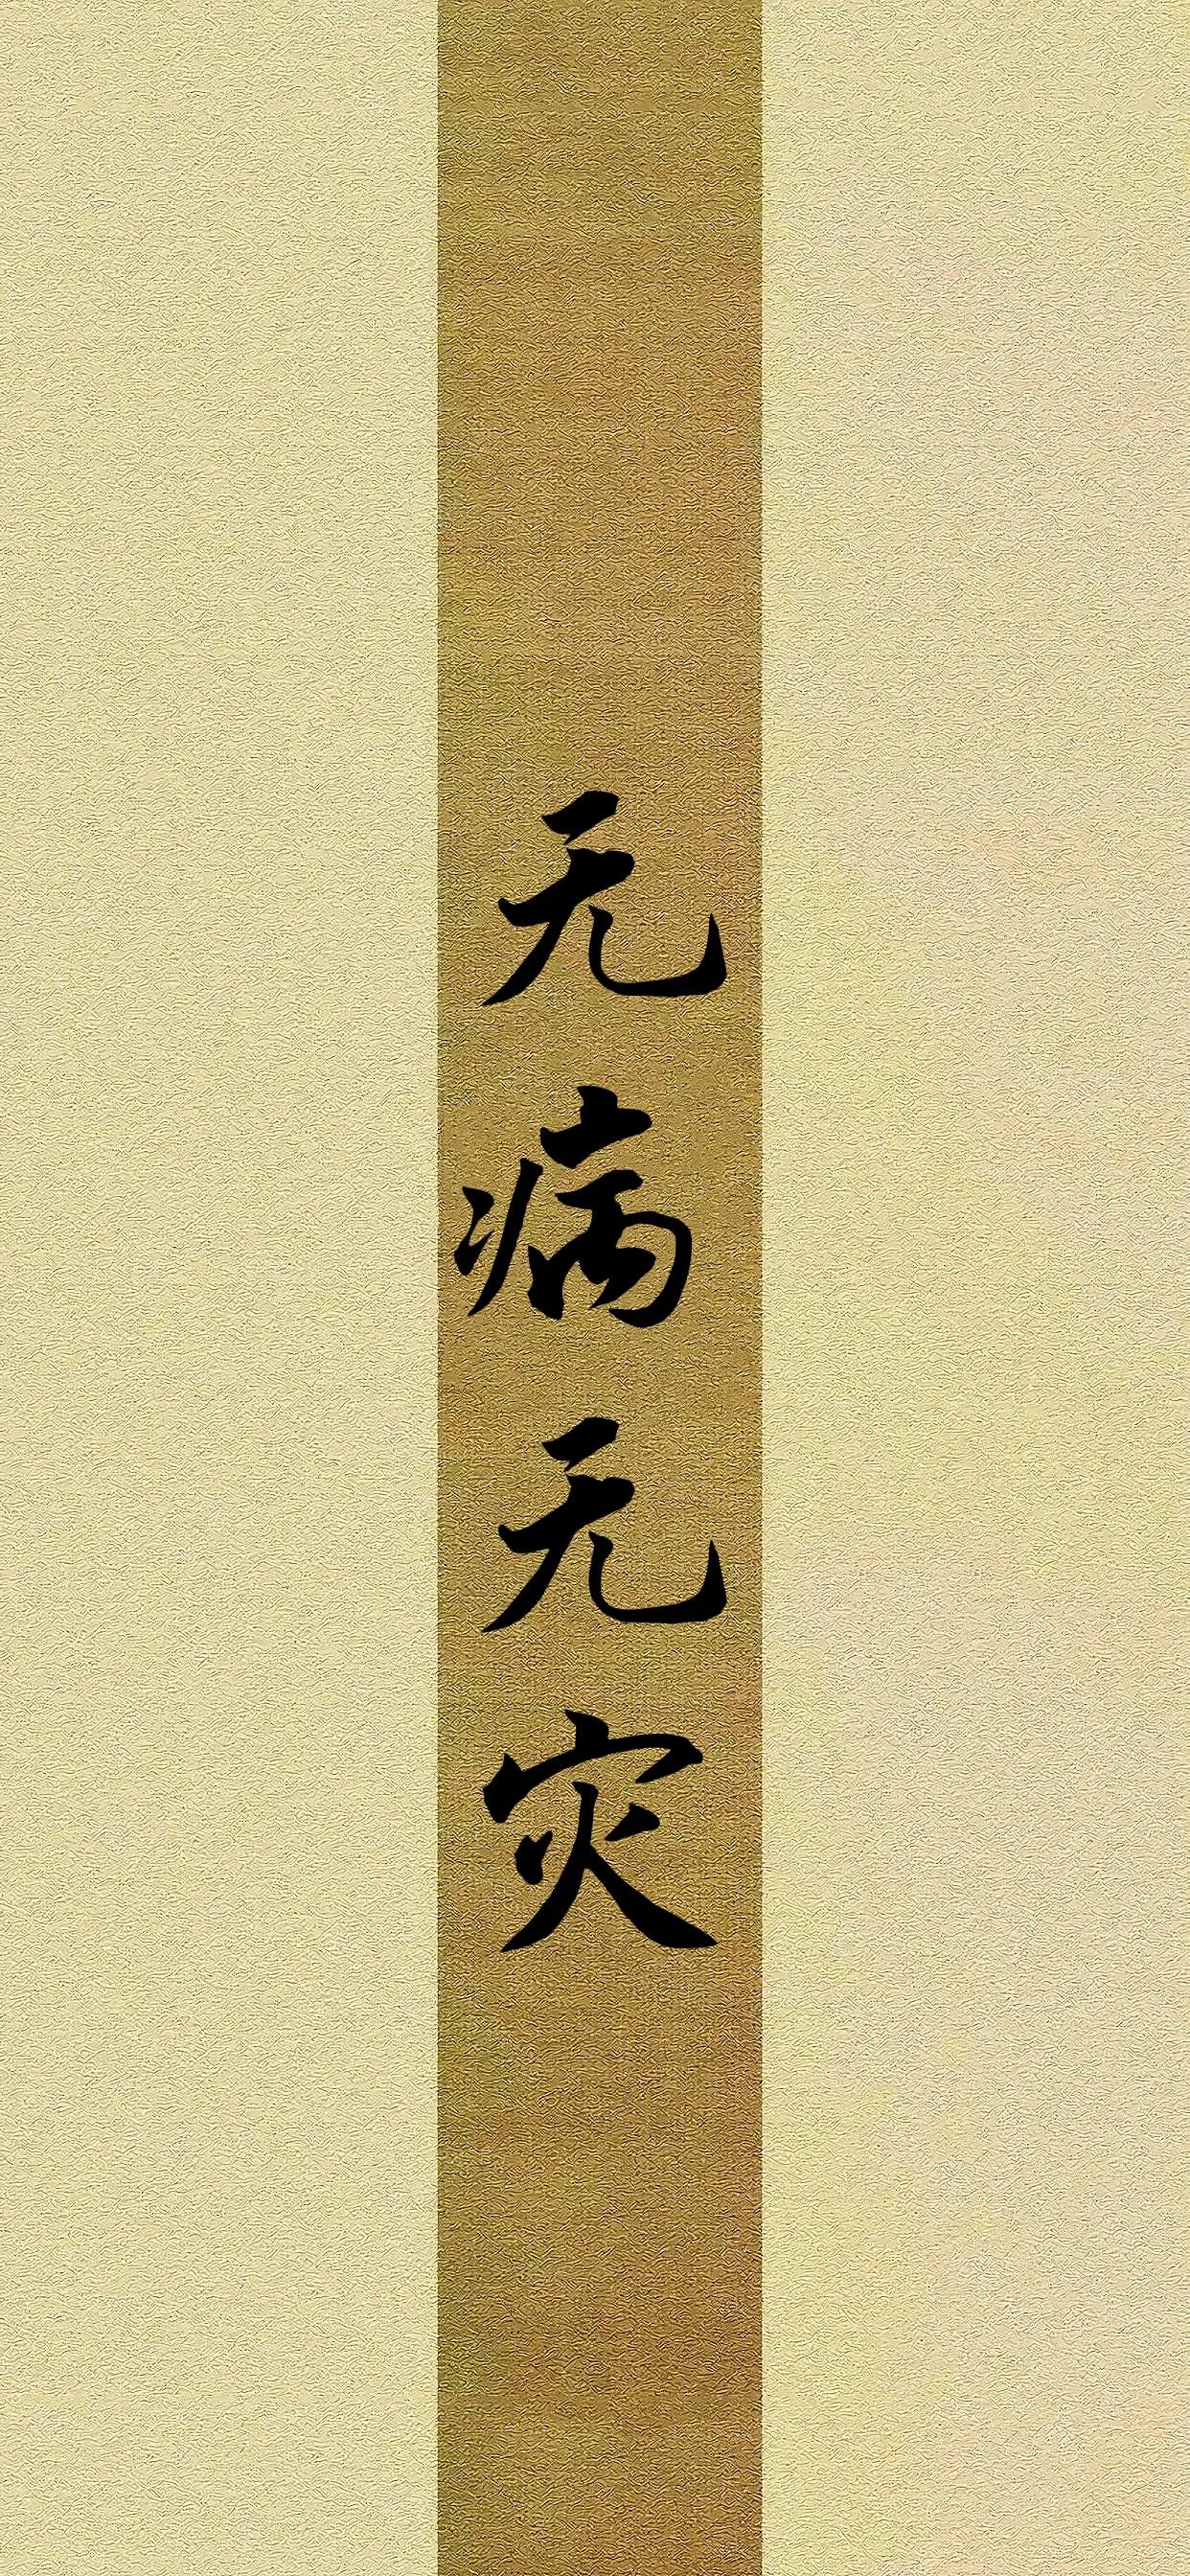 无病无灾